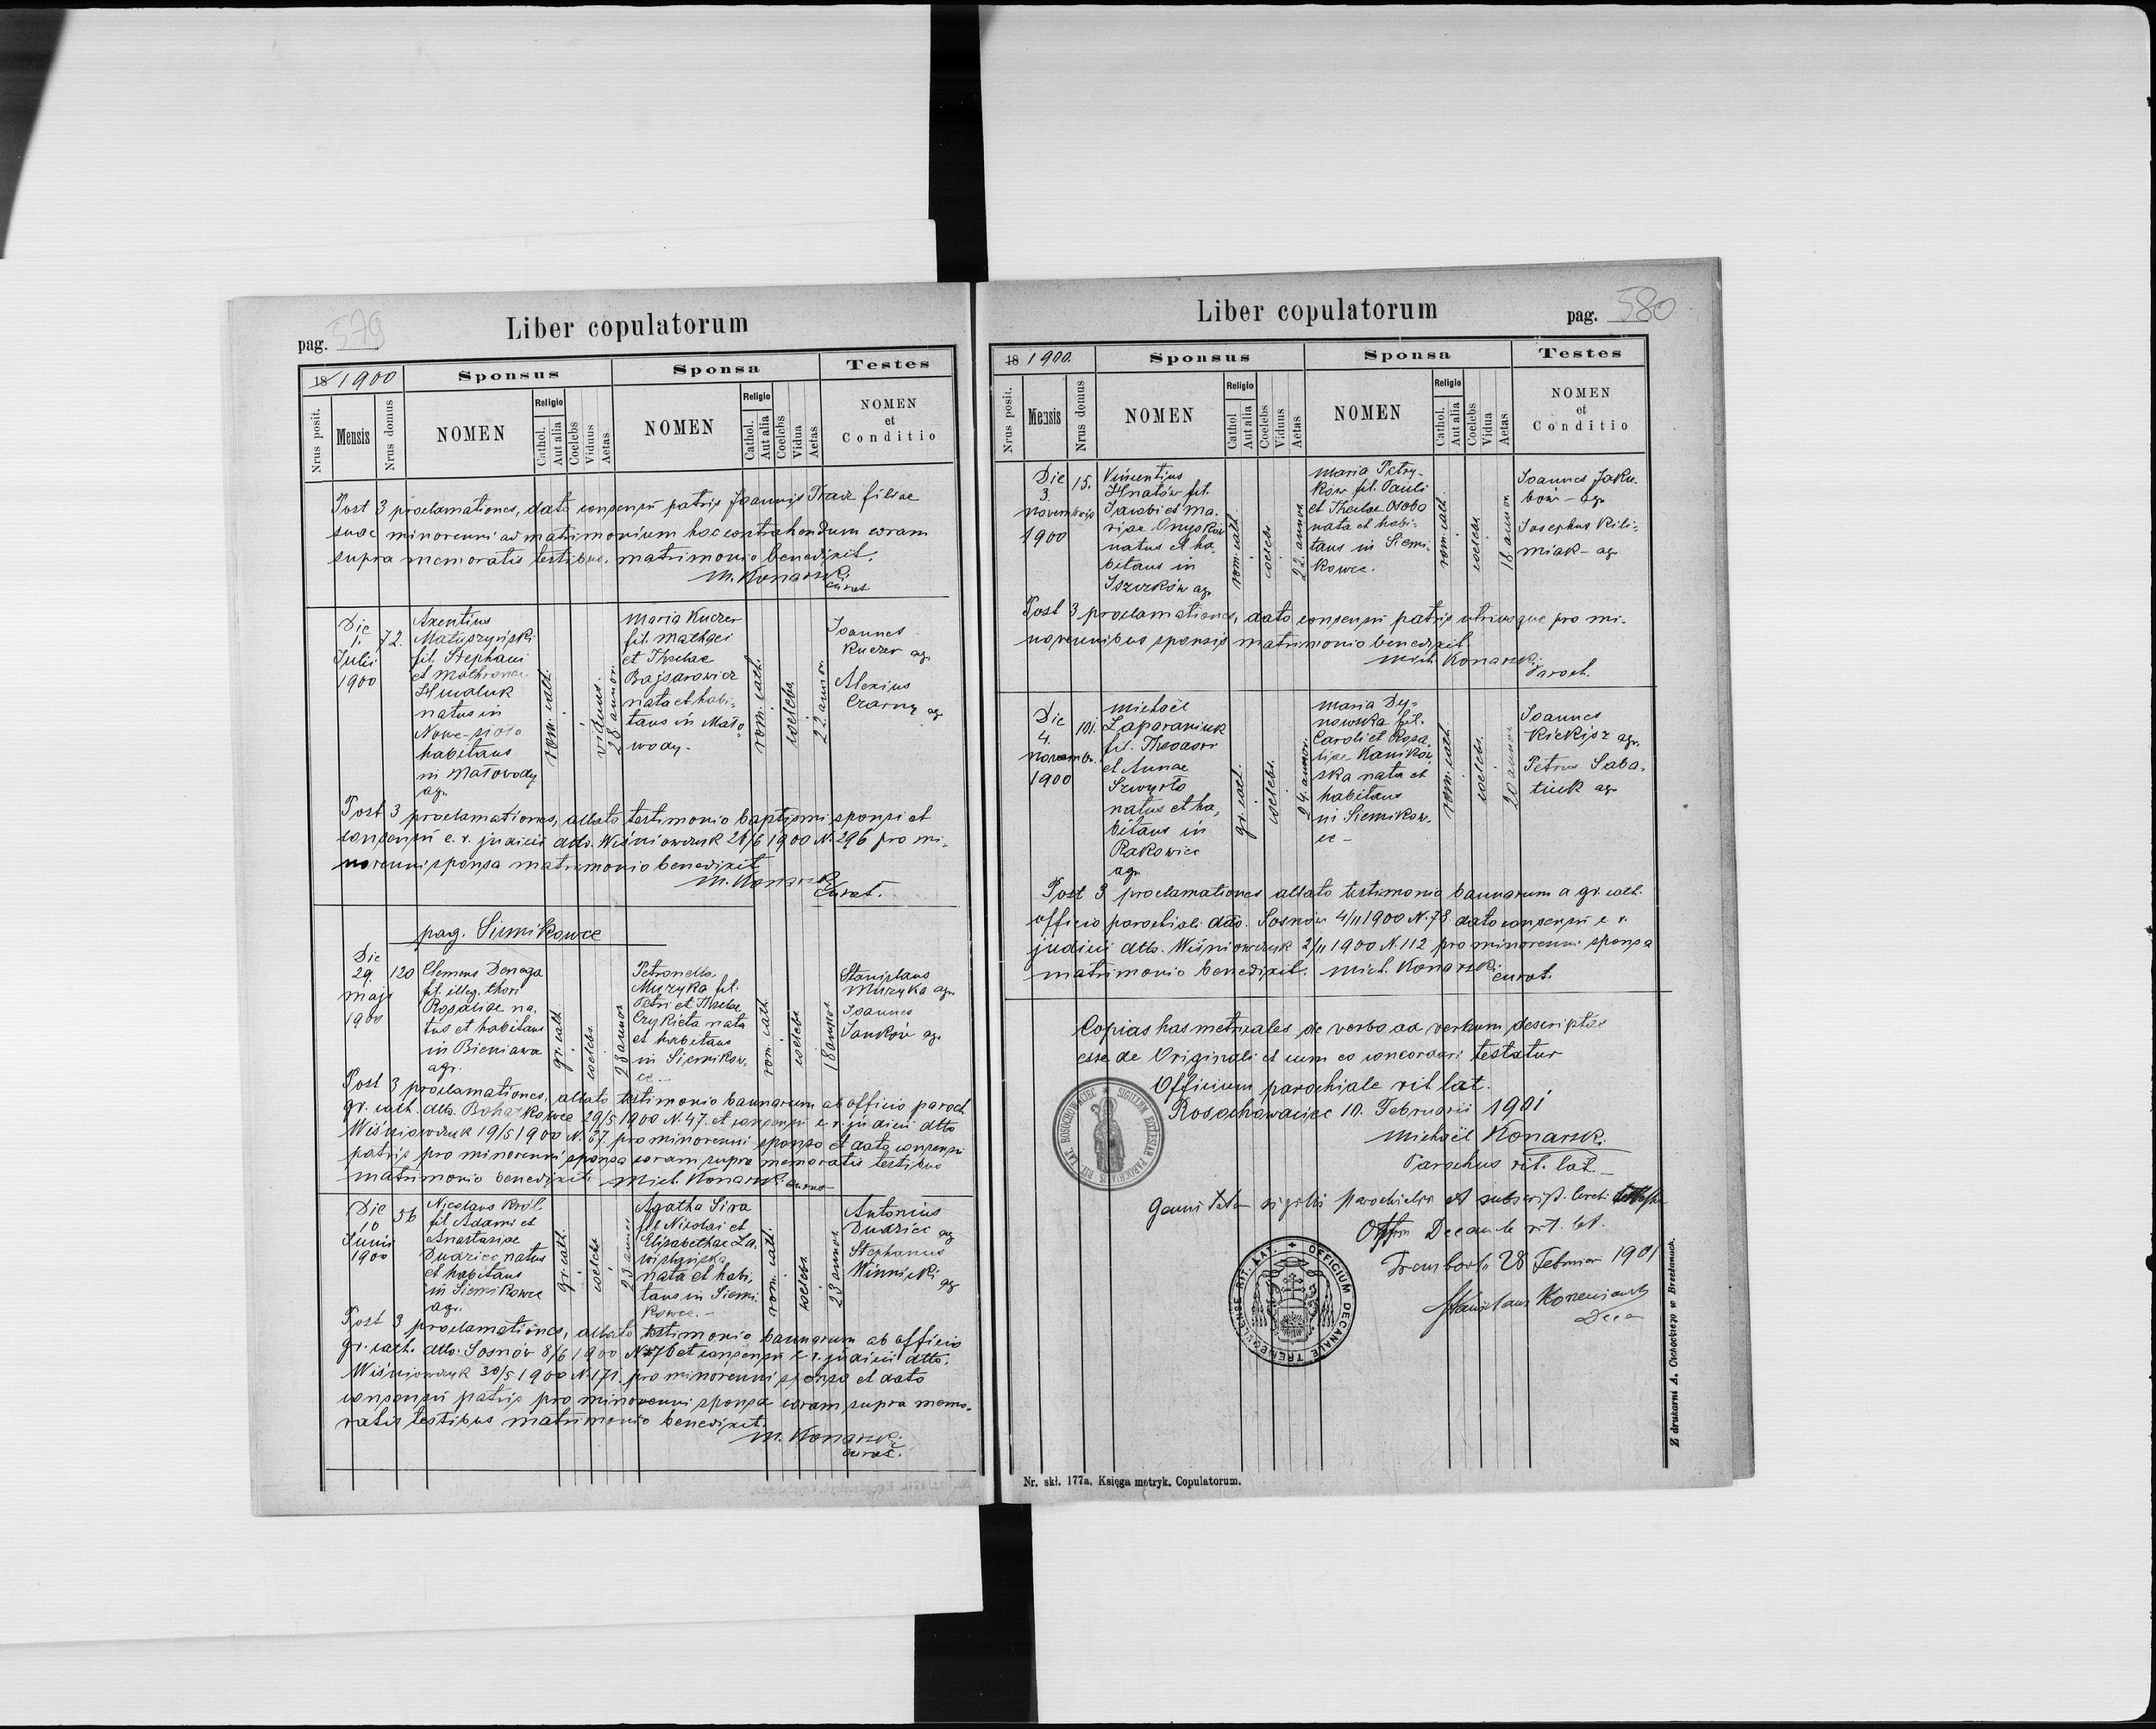 pag. 579
Liber copulatorum
18 1900
Sponsus
Sponsa
Testes
Nrus posit.
Mensis
Nrus domus
NOMEN
Religio
Cathol.
Aut alia
Coelebs
Viduus
Aetas
NOMEN
Religio
Cathol.
Aut alia
Coelebs
Vidua
Aetas
NOMEN
et
Conditio
Post 3 proclamationes, dato consensu patris Joannis Tracz filiae
suae minorenni ad matrimonium hoc contrahendum coram
supra memoratis testibus, matrimonio benedixit.
M. Konarski
curat
Die
1.
Julii
1900
72.
Axentius
Matuszyński
fil. Stephani
et Mathronae
Hwaluk
natus in
Nowe-sioło
habitans
in Małowody
agr.
rom. cath.
viduus.
28 annor.
Maria Kuczer
fil. Mathaei
et Theclae
Bajsarowicz
nata et habi-
tans in Mało
wody.
rom. cath.
coelebs
22 annor.
Joannes
Kuczer agr.
Alexius
Czarny agr.
Post 3 proclamationes, allato testimonio baptismi sponsi et
consensu c. r. judicii dtto. Wiśniowczyk 21/6 1900 N. 296 pro mi-
norenni sponsa matrimonio benedixit
M. Konarski
Curat.
pag. Siemikowce
Die
29.
maji
1900
120
Clemens Denega
fil. illeg. thori
Rosaliae na-
tus et habitans
in Bieniawa
agr.
gr. cath.
coelebs.
28 annor
Petronella
Muzyka fil.
Petri et Theclae
Czykieta nata
et habitans
in Siemikow-
ce.
rom. cath.
coelebs
18 annor.
Stanislaus
Muzyka agr.
Joannes
Janków agr.
Post 3 proclamationes, allato testimonio bannorum ab officio paroch.
gr. cath. dtto. Bohatkowce 29/5 1900 N. 47. et consensu c. r. judicii dtto
Wiśniowczyk 19/5 1900 N. 67. pro minorenni sponso et dato consensu
patris pro minorenni sponsa coram supra memoratis testibus
matrimonio benedixit. Mich. Konarski curat
Die
10
Junii
1900
56
Nicolaus Król
fil. Adami et
Anastasiae
Dudziec natus
et habitans
in Siemikowce
agr.
gr. cath.
coelebs
23 annor
Agatha Sira
fil. Nicolai et
Elisabethae
nata et habi-
tans in Siemi-
kowce.
rom. cath.
coelebs
23 annor
Antonius
Dudziec agr
Stephanus
Winnicki
agr
Post 3 proclamationes, allato testimonio bannorum ab officio
gr. cath. dtto. Sosnów 8/6 1900 N. 76 et consensu c. r. judicii dtto.
Wiśniowczyk 30/5 1900 N. 171. pro minorenni sponso et dato
consensu patris pro minorenni sponsa coram supra memo-
ratis testibus matrimonio benedixit.
M. Konarski
curat.
Liber copulatorum
pag. 580
18 1900.
Sponsus
Sponsa
Testes
Nrus posit.
Mensis
Nrus domus
NOMEN
Religio
Cathol
Aut alia
Coelebs
Viduus
Aetas
NOMEN
Religio
Cathol.
Aut alia
Coelebs
Vidua
Aetas
NOMEN
et
Conditio
Die
3.
novembris
1900
15.
Vincentius
Hnatów fil.
Jacobi et Ma-
riae Onyśków
natus et ha-
bitans in
Iszczków agr.
rom. cath.
coelebs
22 annor
Maria Petry-
ków fil. Pauli
et Theclae Osoba
nata et habi-
tans in Siemi-
kowce.
rom. cath.
coelebs
18 annor.
Joannes Jaku-
bów - agr.
Josephus Kili-
miak - agr
Post 3 proclamationes, dato consensu patris utriusque pro mi-
norennibus sponsis matrimonio benedixit.
Mich. Konarski
Paroch.
Die
4.
novembr.
1900
101.
Michaël
Zaparaniuk
fil. Theodori
et Annae
Szwyrło
natus et ha-
bitans in
Rakowiec
agr.
gr. cat.
coelebs.
24. annor.
Maria Dy-
nowska fil.
Caroli et Rosa-
liae Kaników-
ska nata et
habitans
in Siemikow-
ce -
rom. cath.
coelebs.
20 annor
Joannes
Kiekisz agr.
Petrus Saba-
tiuk agr
Post 3 proclamationes allato testimonio bannorum a gr. cath.
officio parochiali dtto. Sosnów 4/11 1900 N. 78 dato consensu c. r.
judicii dtto. Wiśniowczyk 2/11 1900 N. 112 pro minorenni sponsa
matrimonio benedixit. Mich. Konarski
curat.
Copias has metricales de verbo ad verbum descriptas
esse de Originali et cum eo concordari testatur
Officium parochiale rit lat.
Rosochowaciec 10. Februarii 1901
Michaël Konarski
Parochus rit. lat.
SIGILLUM ECCLESIAE PAROCHIALIS RIT. LAT. ROSOCHOWACIEC
sigilli parochialis et
Offm Decanale rit. lat.
Trembowla 28 Februar 1901
OFFICIUM DECANALE TREMBOWLENSE RIT. LAT.
Nr. skł. 177a. Księga metryk. Copulatorum.
Z drukarni A. Chchockiego w Brzeżanach.